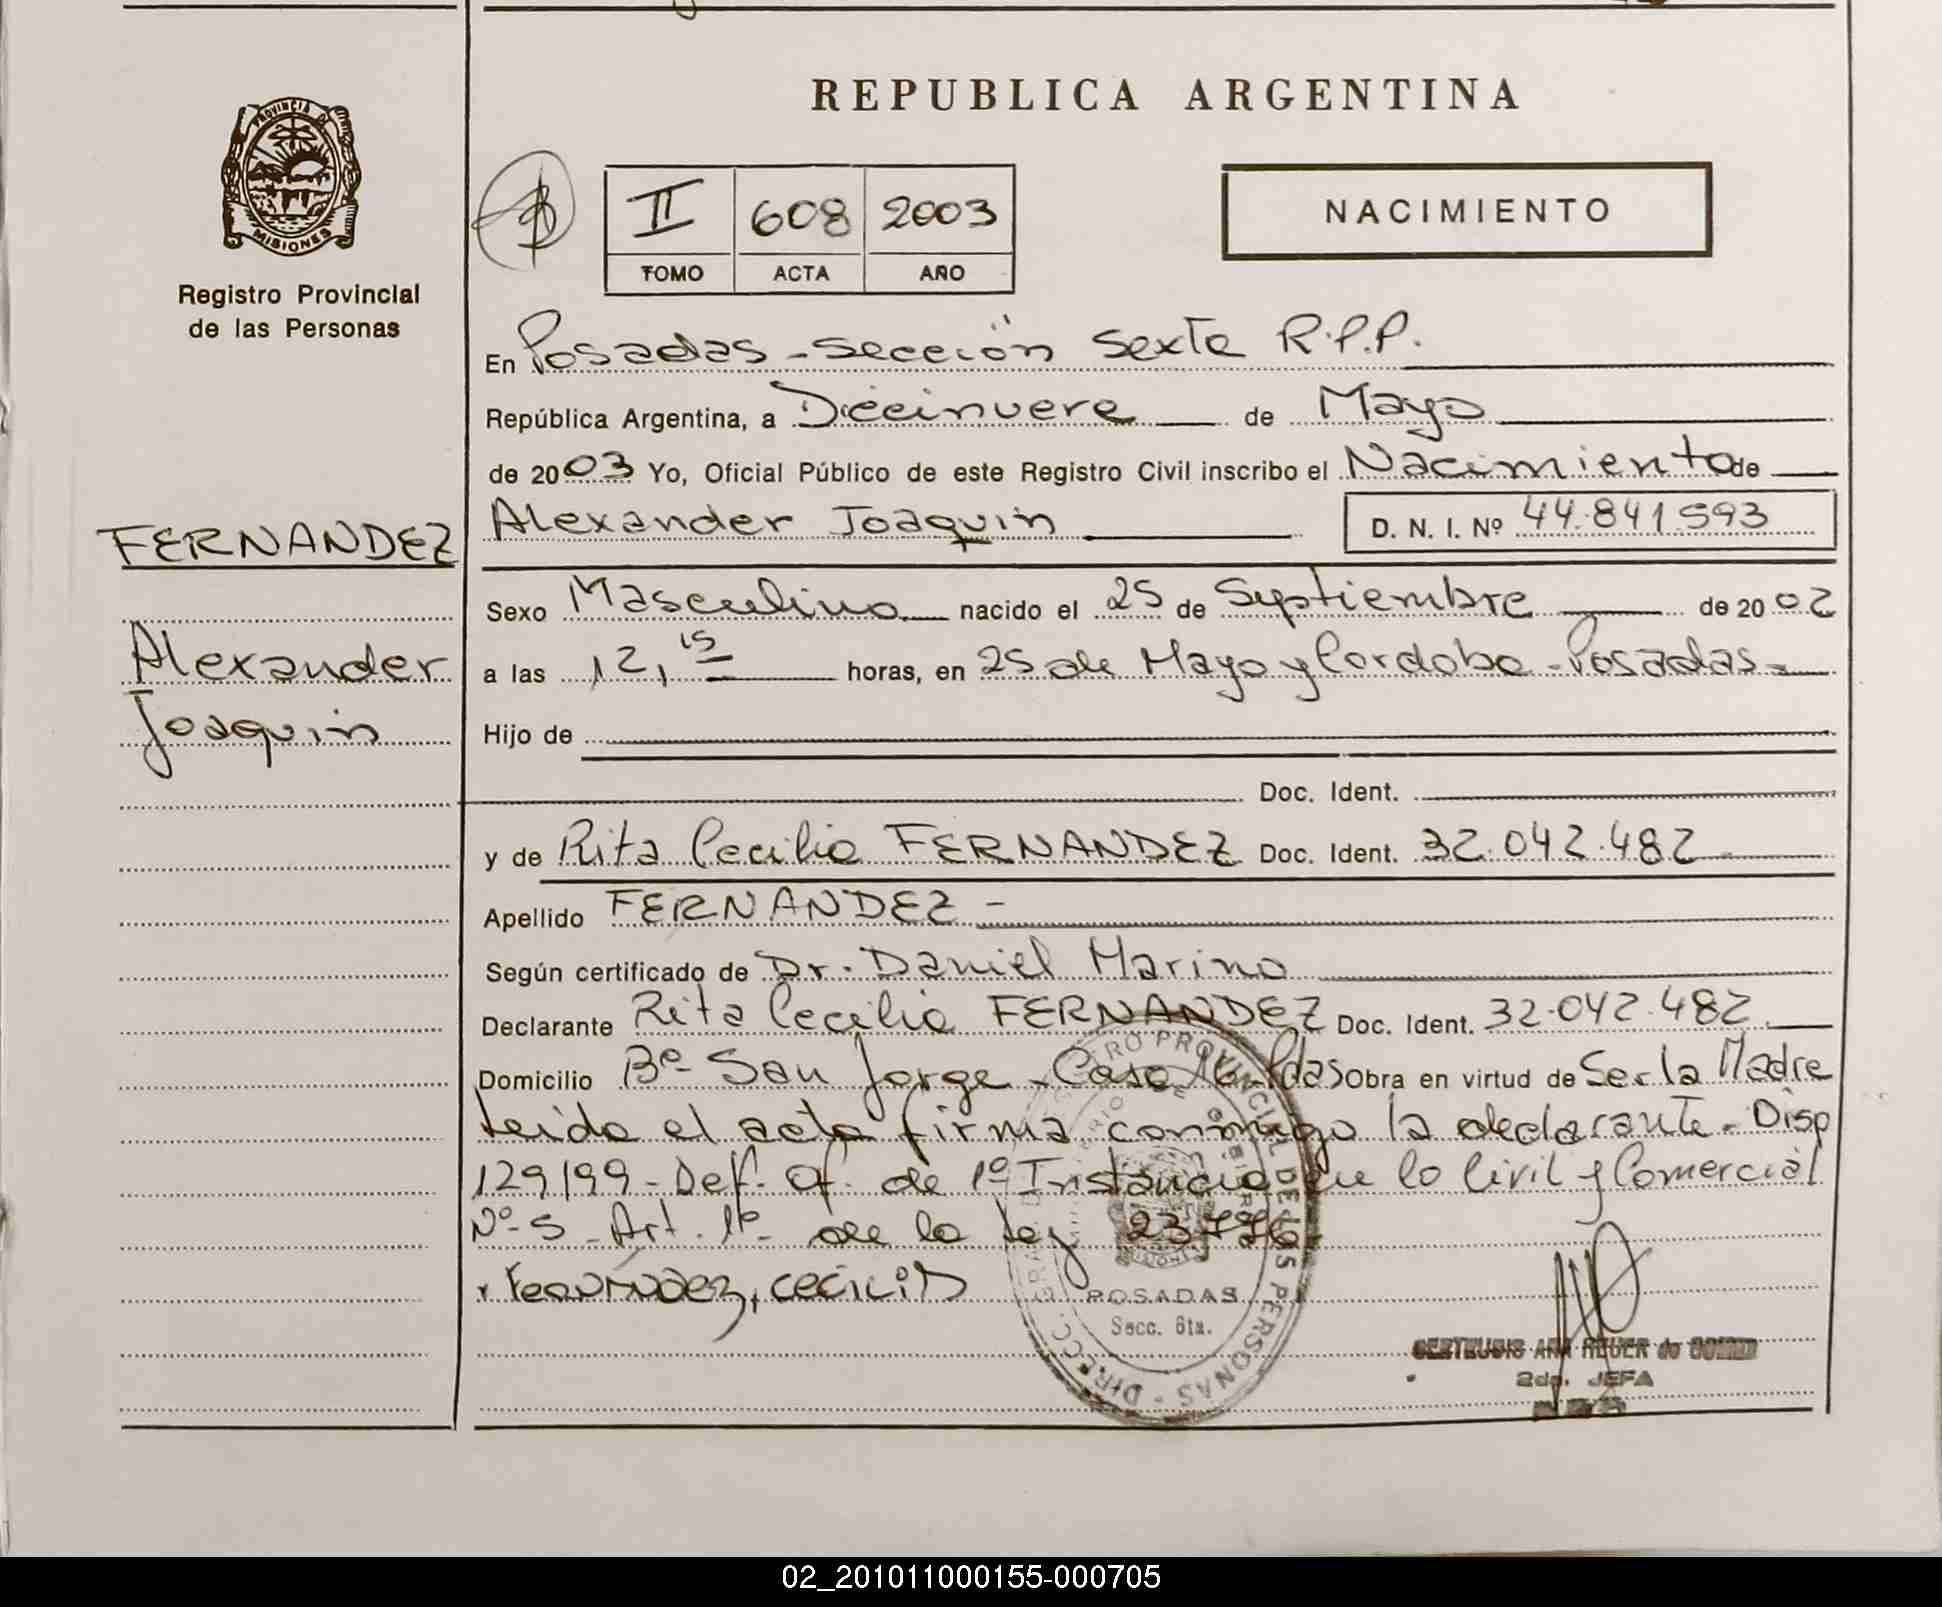 REPUBLICA ARGENTINA
PROVINCIA DE
MISIONES
Registro Provincial
de las Personas
II 608 2003
TOMO ACTA AÑO
NACIMIENTO
En Posadas - Sección Sexta R.P.P.
República Argentina, a Diecinueve de Mayo
de 2003 Yo, Oficial Público de este Registro Civil inscribo el Nacimiento de
Alexander Joaquin D. N. I. Nº 44.841.593
FERNANDEZ
Alexander
Joaquin
Sexo Masculino nacido el 25 de Septiembre de 2002
a las 12,15 horas, en 25 de Mayo y Cordoba - Posadas -
Hijo de
Doc. Ident.
y de Rita Cecilia FERNANDEZ Doc. Ident. 32.042.482
Apellido FERNANDEZ -
Según certificado de Dr. Daniel Marino
Declarante Rita Cecilia FERNANDEZ Doc. Ident. 32.042.482
Domicilio Bº San Jorge - Casa Pdas Obra en virtud de Ser la Madre
Leido el acta firma conmigo la declarante - Disp
129/99 - Def. Of. de 1º Instancia en lo Civil y Comercial
Nº 5 - Art. 1º de la Ley 23776
Fernández, Cecilia
POSADAS
Secc. 6ta.
DIRECC. REGISTRO PROVINCIAL DE LAS PERSONAS
GERTRUDIS ANA REUER de
2da. JEFA
02_201011000155-000705